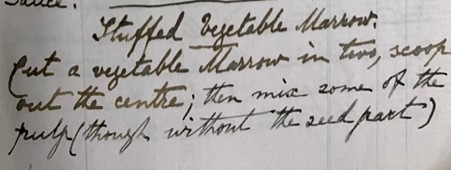 Sauce.
Stuffed Vegetable Marrow.
Cut a vegetable Marrow in two, scoop
out the centre; then mix some of the
pulp (though without the seed part)